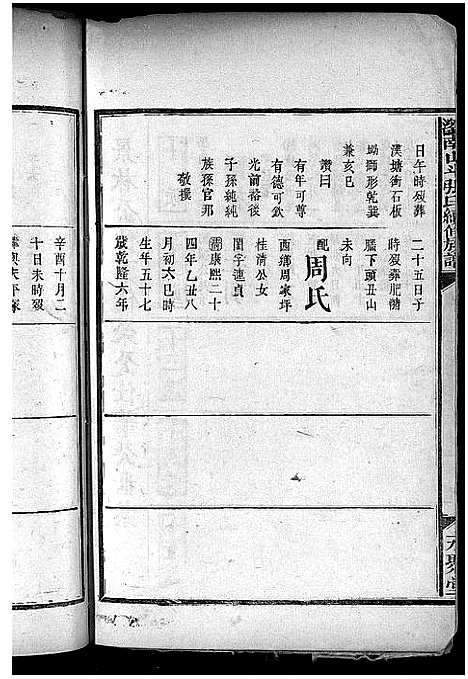 日午時歿葬
漢塘衝石板
坳獅形乾巽
兼亥巳
讚曰
有年可尊
有德可欽
光前裕後
子孫純純
族孫官那
敬撰
二十五日子
時歿葬肥衝
屋下頭丑山
未向
配周氏
酉鄉周家坪
桂清公女
閨字連貞
清康熙二十
四年乙丑八
月初六巳時
生年五十七
歲乾隆六年
辛酉十月二
十日未時歿
氏續修族譜
堂